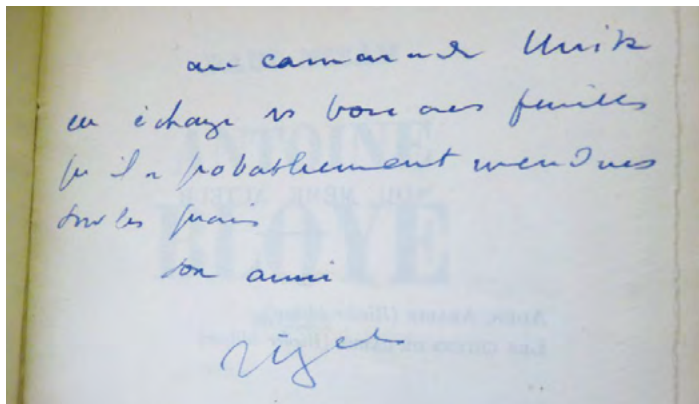 au camarade Unik
en échange des bonnes feuilles
qu'il a probablement vendues
sur les quais
son ami
Nizan